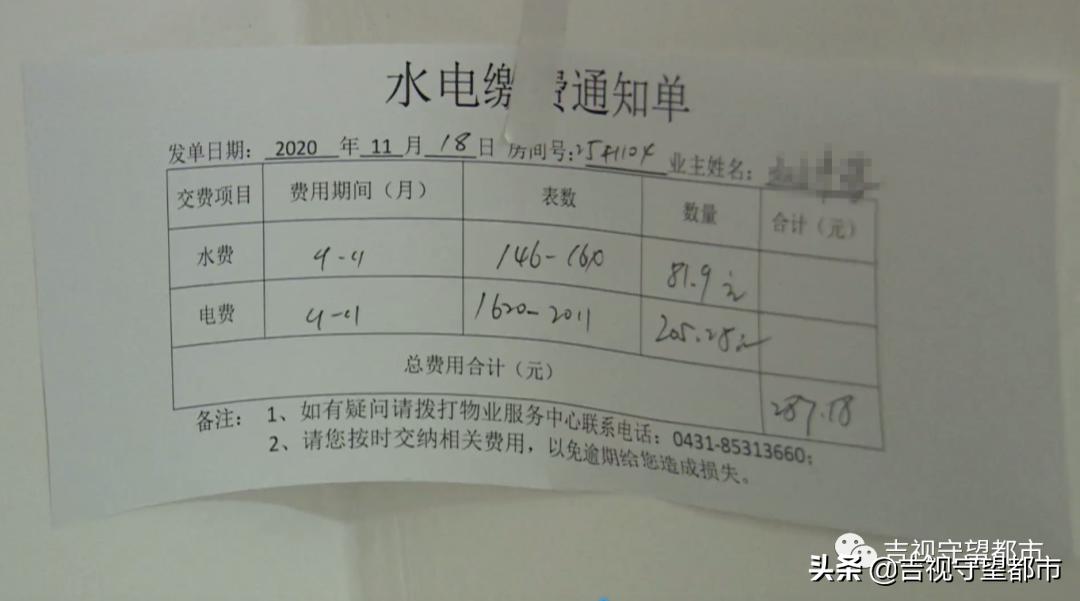 水电缴费通知单
发单日期： 2020 年 11 月 18 日 房间号：2541104 业主姓名：
交费项目 费用期间（月） 表数 数量 合计（元）
水费 4-4 146-160 81.9元
电费 4-4 1620-2011 205.28元
总费用合计（元） 287.18
备注： 1、如有疑问请拨打物业服务中心联系电话：0431-85313660；
2、请您按时交纳相关费用，以免逾期给您造成损失。
吉视守望都市
头条 @吉视守望都市